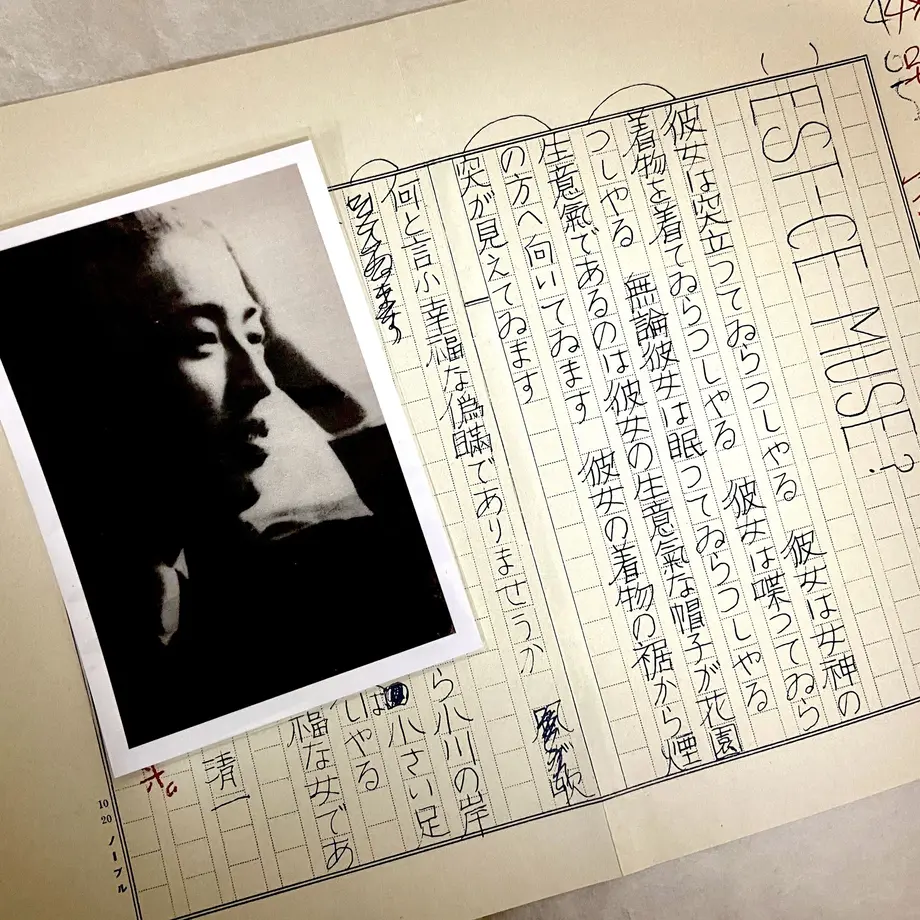 EST-CE MUSE?
彼女は突立つてゐらつしやる　彼女は女神の
着物を着てゐらつしやる　彼女は喋つてゐら
つしやる　無論彼女は眠つてゐらつしやる
生意氣であるのは彼女の生意氣な帽子が花園
の方へ向いてゐます　彼女の着物の裾から煙
突が見えてゐます
何と言ふ幸福な僞瞞でありませうか　風が吹
ら小川の岸
小さい足
やる
福な女であ
清一
10
20
ノーブル